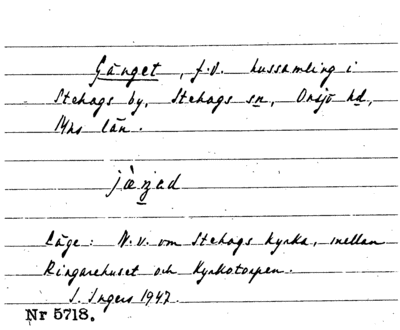 Gänget, f.d. hussamling i
Stehags by, Stehags sn, Onsjö hd,
Mhs län.
jàŋəd
Läge: N.v. om Stehags kyrka, mellan
Ringarehuset och Kyrkotorpen.
I. Ingers 1947.
Nr 5718.